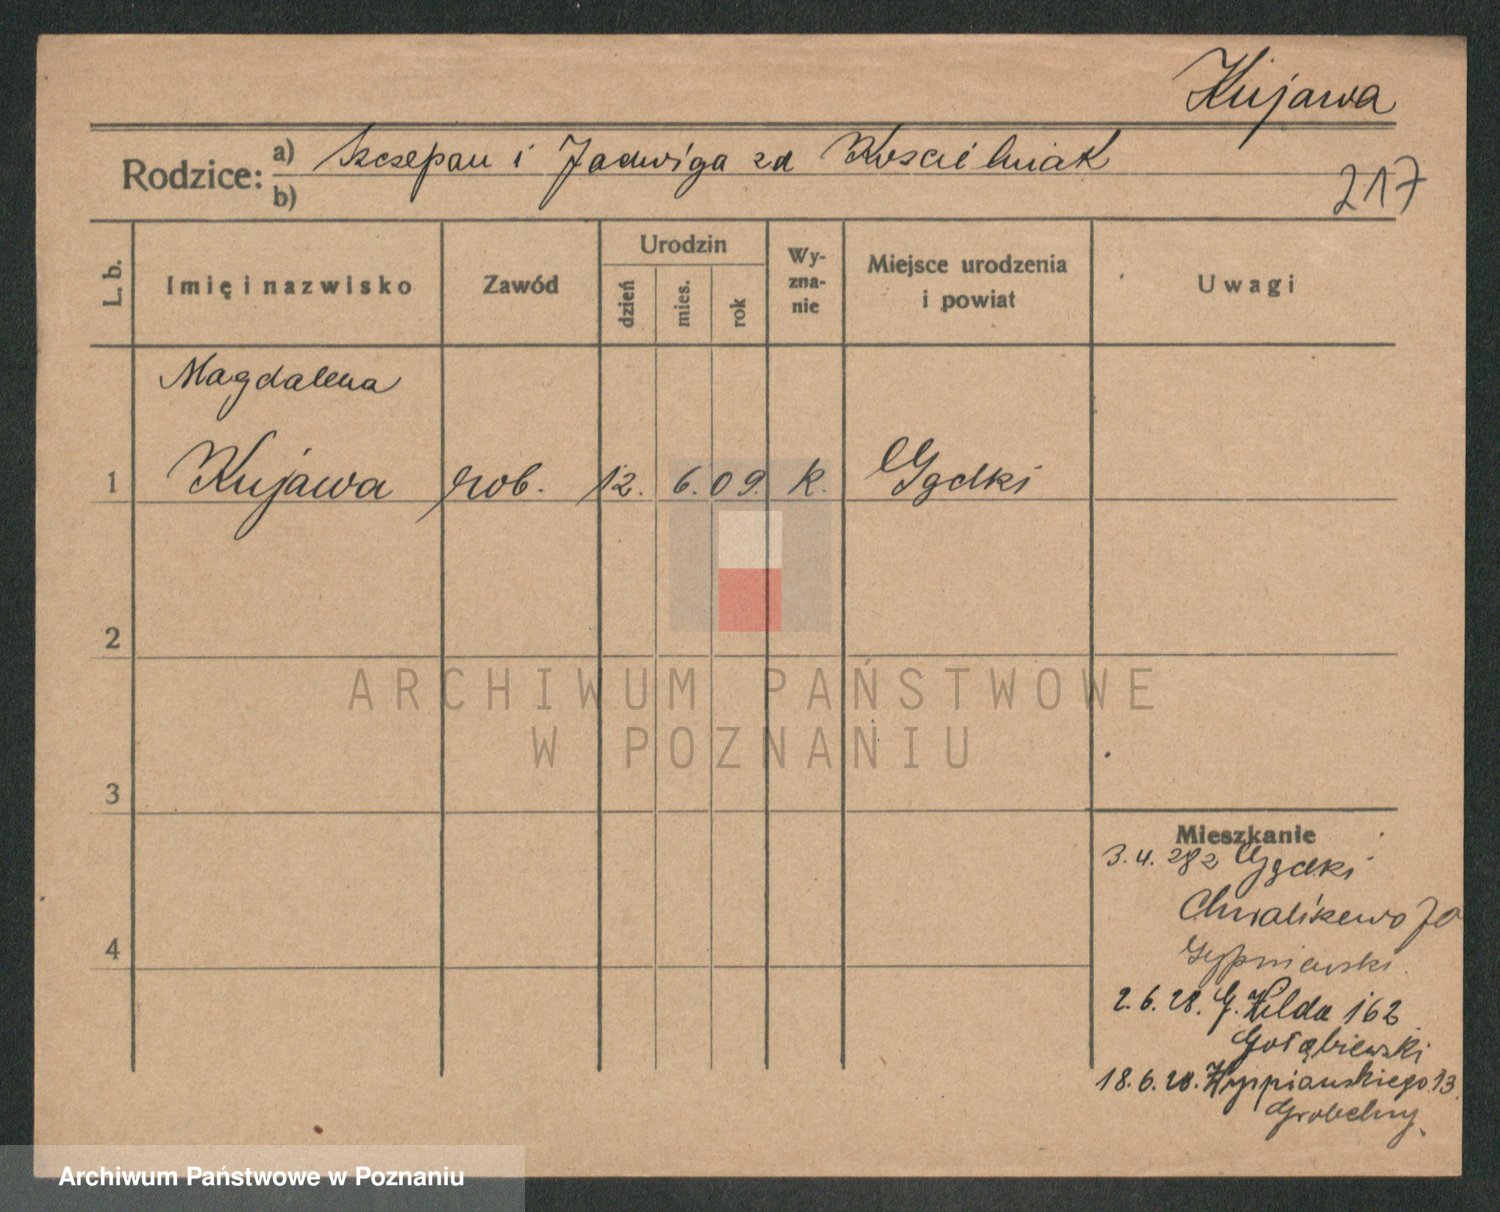 Kujawa
Rodzice: a) Szczepan i Jadwiga zd Kościelniak
b)
217
L. b.
Imię i nazwisko
Zawód
Urodzin
dzień
mies.
rok
Wy-
zna-
nie
Miejsce urodzenia
i powiat
Uwagi
Magdalena
1 Kujawa rob. 12. 6. 09. k. Gądki
2
3
4
ARCHIWUM PAŃSTWOWE
W POZNANIU
Mieszkanie
3.4.28 z Gądki
Chwaliszewo 70
2.6.28. G. Wilda 162
Gołębiewski
18.6.28. Wyspiańskiego 13.
Grobelny.
Archiwum Państwowe w Poznaniu